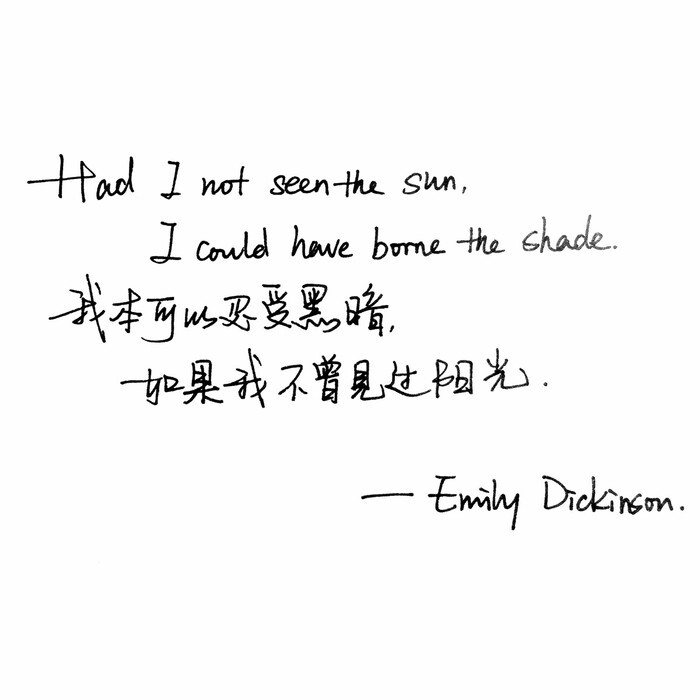 Had I not seen the sun,
I could have borne the shade.
我本可以忍受黑暗,
如果我不曾见过阳光.
— Emily Dickinson.